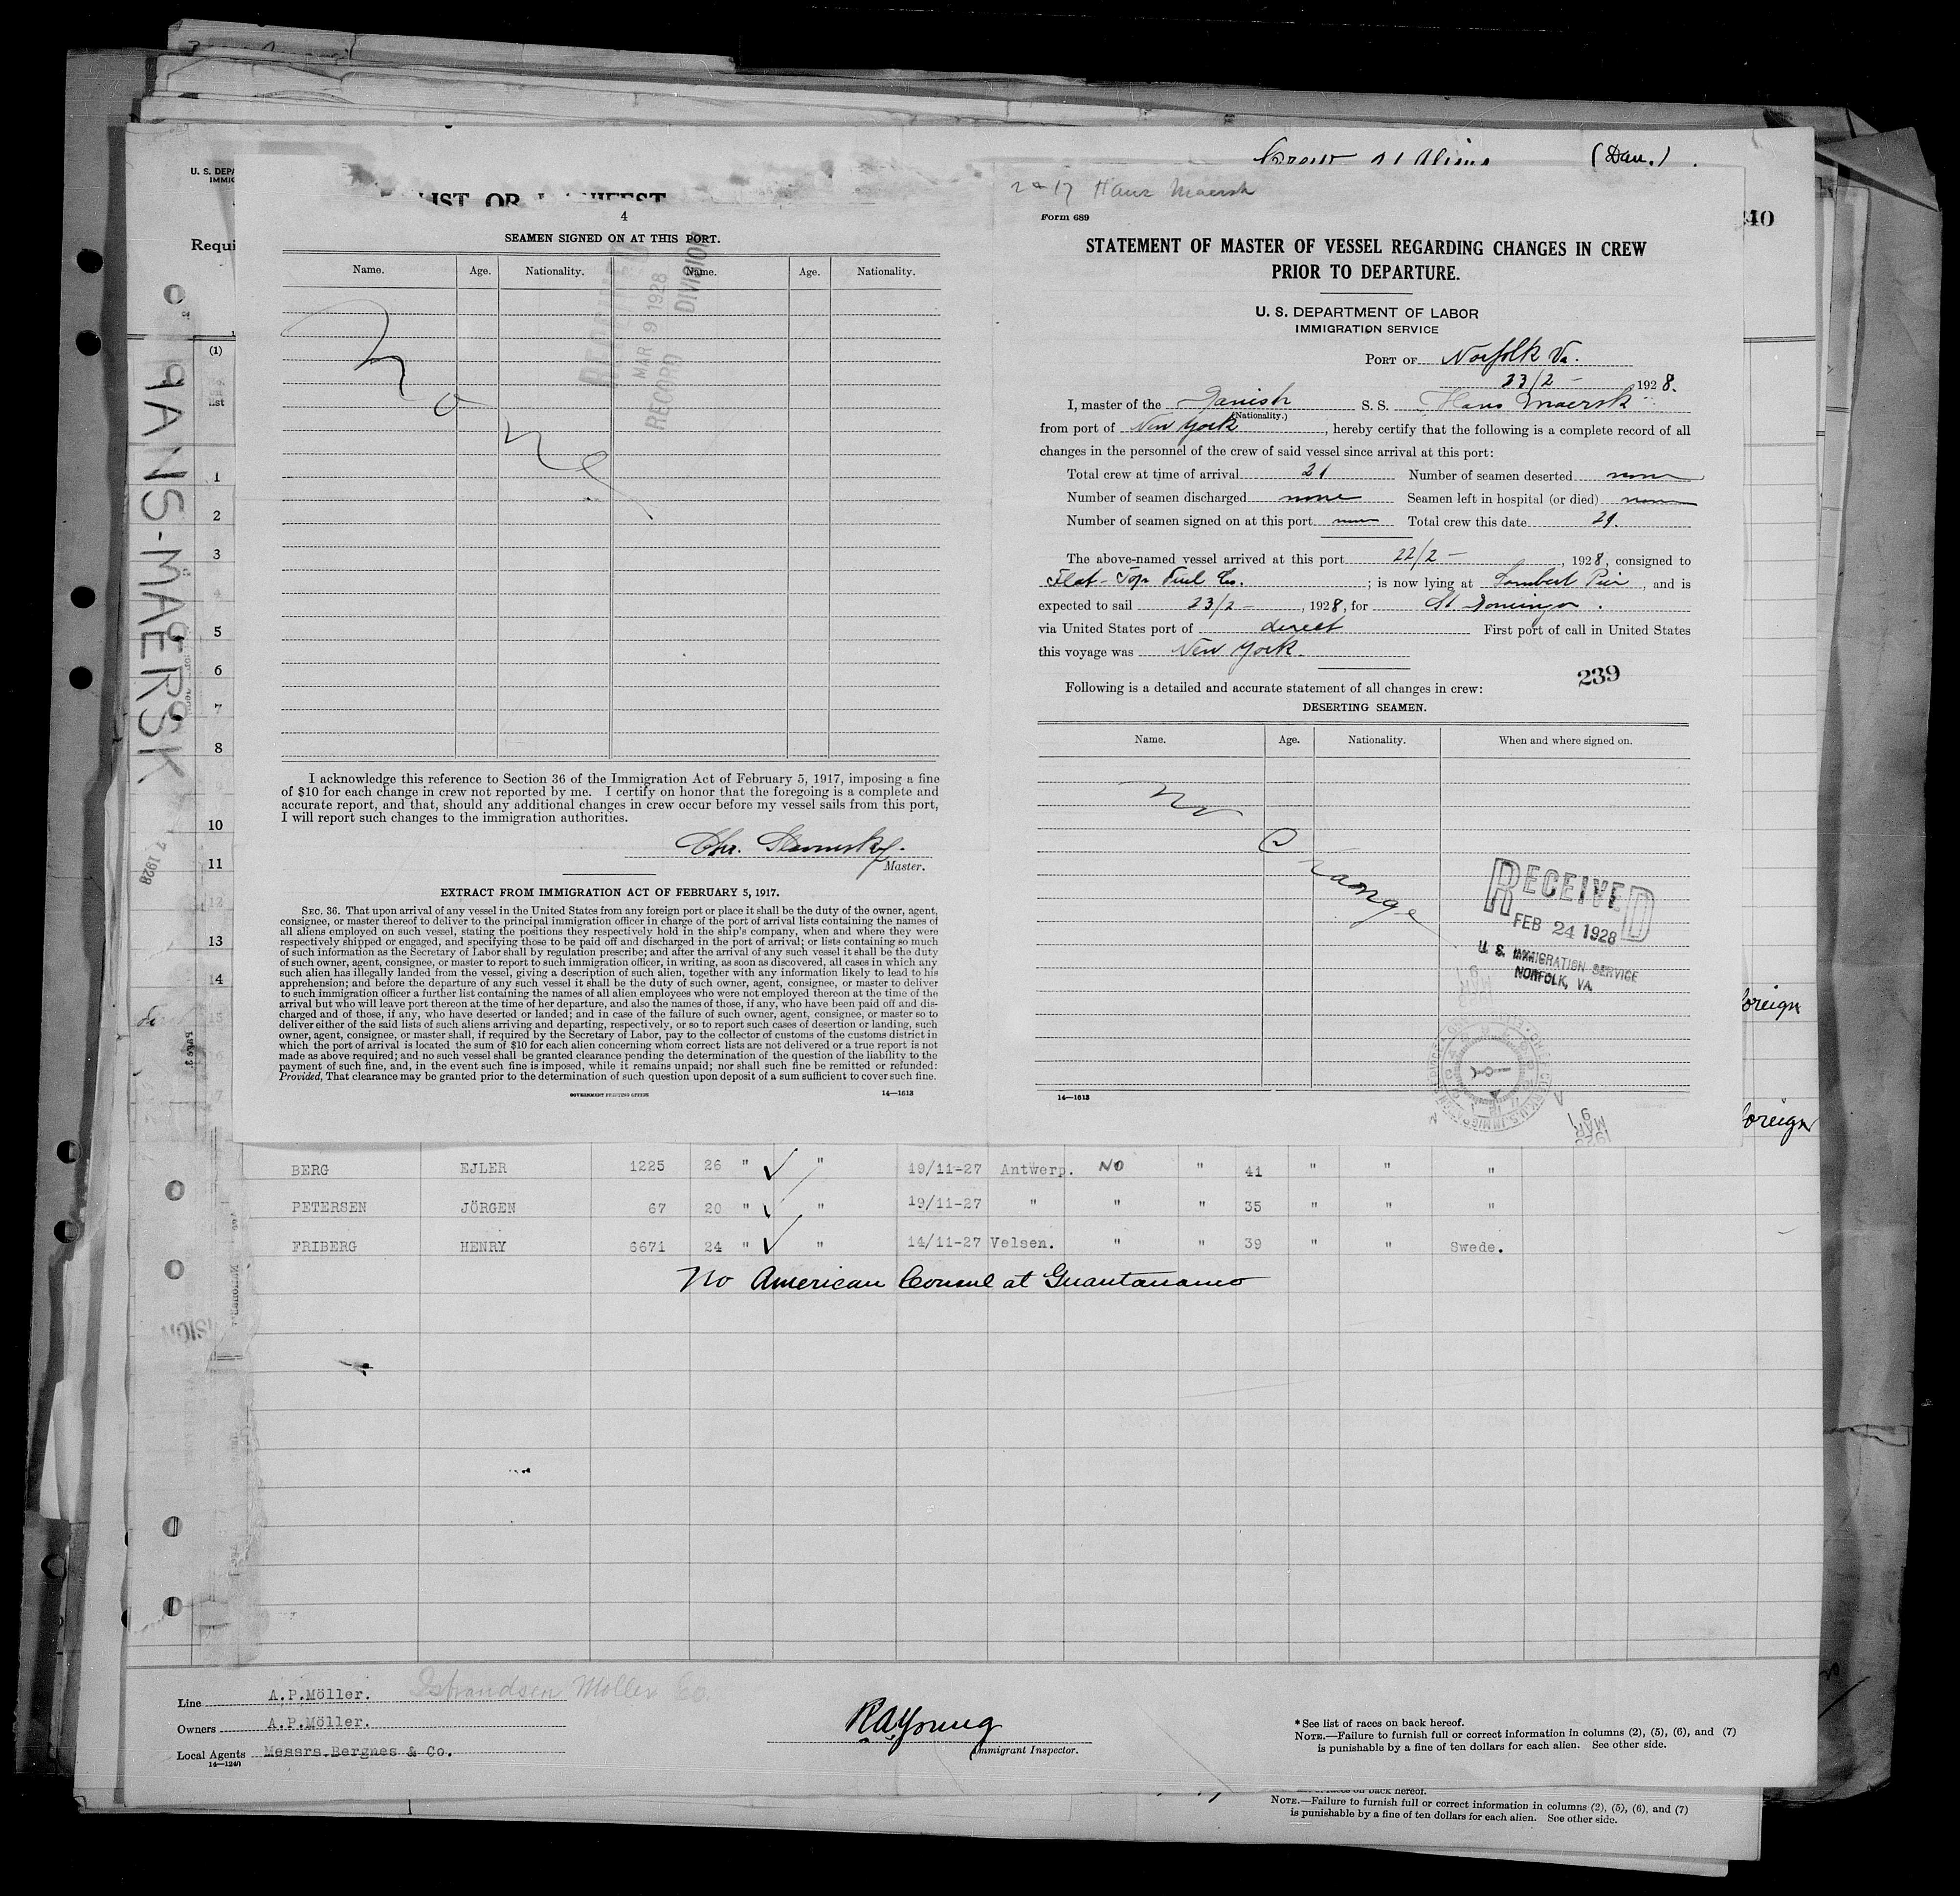 (Dan.)
U. S. DEPA
IMMIG
LIST OR MANIFEST
Hans Maersk
240
Requi
4
SEAMEN SIGNED ON AT THIS PORT.
Name. Age. Nationality. Name. Age. Nationality.
MAR 9 1928
RECORD DIVISION
None
I acknowledge this reference to Section 36 of the Immigration Act of February 5, 1917, imposing a fine
of $10 for each change in crew not reported by me. I certify on honor that the foregoing is a complete and
accurate report, and that, should any additional changes in crew occur before my vessel sails from this port,
I will report such changes to the immigration authorities.
Chr.
Master.
EXTRACT FROM IMMIGRATION ACT OF FEBRUARY 5, 1917.
SEC. 36. That upon arrival of any vessel in the United States from any foreign port or place it shall be the duty of the owner, agent,
consignee, or master thereof to deliver to the principal immigration officer in charge of the port of arrival lists containing the names of
all aliens employed on such vessel, stating the positions they respectively hold in the ship's company, when and where they were
respectively shipped or engaged, and specifying those to be paid off and discharged in the port of arrival; or lists containing so much
of such information as the Secretary of Labor shall by regulation prescribe; and after the arrival of any such vessel it shall be the duty
of such owner, agent, consignee, or master to report to such immigration officer, in writing, as soon as discovered, all cases in which any
such alien has illegally landed from the vessel, giving a description of such alien, together with any information likely to lead to his
apprehension; and before the departure of any such vessel it shall be the duty of such owner, agent, consignee, or master to deliver
to such immigration officer a further list containing the names of all alien employees who were not employed thereon at the time of the
arrival but who will leave port thereon at the time of her departure, and also the names of those, if any, who have been paid off and dis-
charged and of those, if any, who have deserted or landed; and in case of the failure of such owner, agent, consignee, or master so to
deliver either of the said lists of such aliens arriving and departing, respectively, or so to report such cases of desertion or landing, such
owner, agent, consignee, or master shall, if required by the Secretary of Labor, pay to the collector of customs of the customs district in
which the port of arrival is located the sum of $10 for each alien concerning whom correct lists are not delivered or a true report is not
made as above required; and no such vessel shall be granted clearance pending the determination of the question of the liability to the
payment of such fine, and, in the event such fine is imposed, while it remains unpaid; nor shall such fine be remitted or refunded:
Provided, That clearance may be granted prior to the determination of such question upon deposit of a sum sufficient to cover such fine.
GOVERNMENT PRINTING OFFICE 14—1613
Form 689
STATEMENT OF MASTER OF VESSEL REGARDING CHANGES IN CREW
PRIOR TO DEPARTURE.
U. S. DEPARTMENT OF LABOR
IMMIGRATION SERVICE
PORT OF Norfolk Va.
23/2 - 1928.
I, master of the Danish S. S. Hans Maersk
(Nationality.)
from port of New York, hereby certify that the following is a complete record of all
changes in the personnel of the crew of said vessel since arrival at this port:
Total crew at time of arrival 21 Number of seamen deserted none
Number of seamen discharged none Seamen left in hospital (or died) none
Number of seamen signed on at this port none Total crew this date 21.
The above-named vessel arrived at this port 22/2 -, 1928, consigned to
Flat-Top Fuel Co.; is now lying at Lambert Pier, and is
expected to sail 23/2 -, 1928, for St Domingo.
via United States port of direct First port of call in United States
this voyage was New York.
239
Following is a detailed and accurate statement of all changes in crew:
DESERTING SEAMEN.
Name. Age. Nationality. When and where signed on.
No Change
RECEIVED
FEB 24 1928
U. S. IMMIGRATION SERVICE
NORFOLK, VA.
14—1613
HANS-MAERSK
(1)
list
1
2
3
4
5
6
7
8
10
11
12
13
14
15
7 1928
foreign
foreign
BERG EJLER 1225 26 " " 19/11-27 Antwerp. NO " 41 " " "
PETERSEN JÖRGEN 67 20 " " 19/11-27 " " " 35 " " "
FRIBERG HENRY 6671 24 " " 14/11-27 Velsen. " " 39 " " Swede.
No American Consul at Guantanamo
Line A.P.Möller. Isbrandsen Moller Co.
Owners A.P.Möller.
Local Agents Messrs.Bergnes & Co.
14—1240
RAYoung
Immigrant Inspector.
* See list of races on back hereof.
NOTE.—Failure to furnish full or correct information in columns (2), (5), (6), and (7)
is punishable by a fine of ten dollars for each alien. See other side.
of races on back hereof.
NOTE.—Failure to furnish full or correct information in columns (2), (5), (6), and (7)
is punishable by a fine of ten dollars for each alien. See other side.